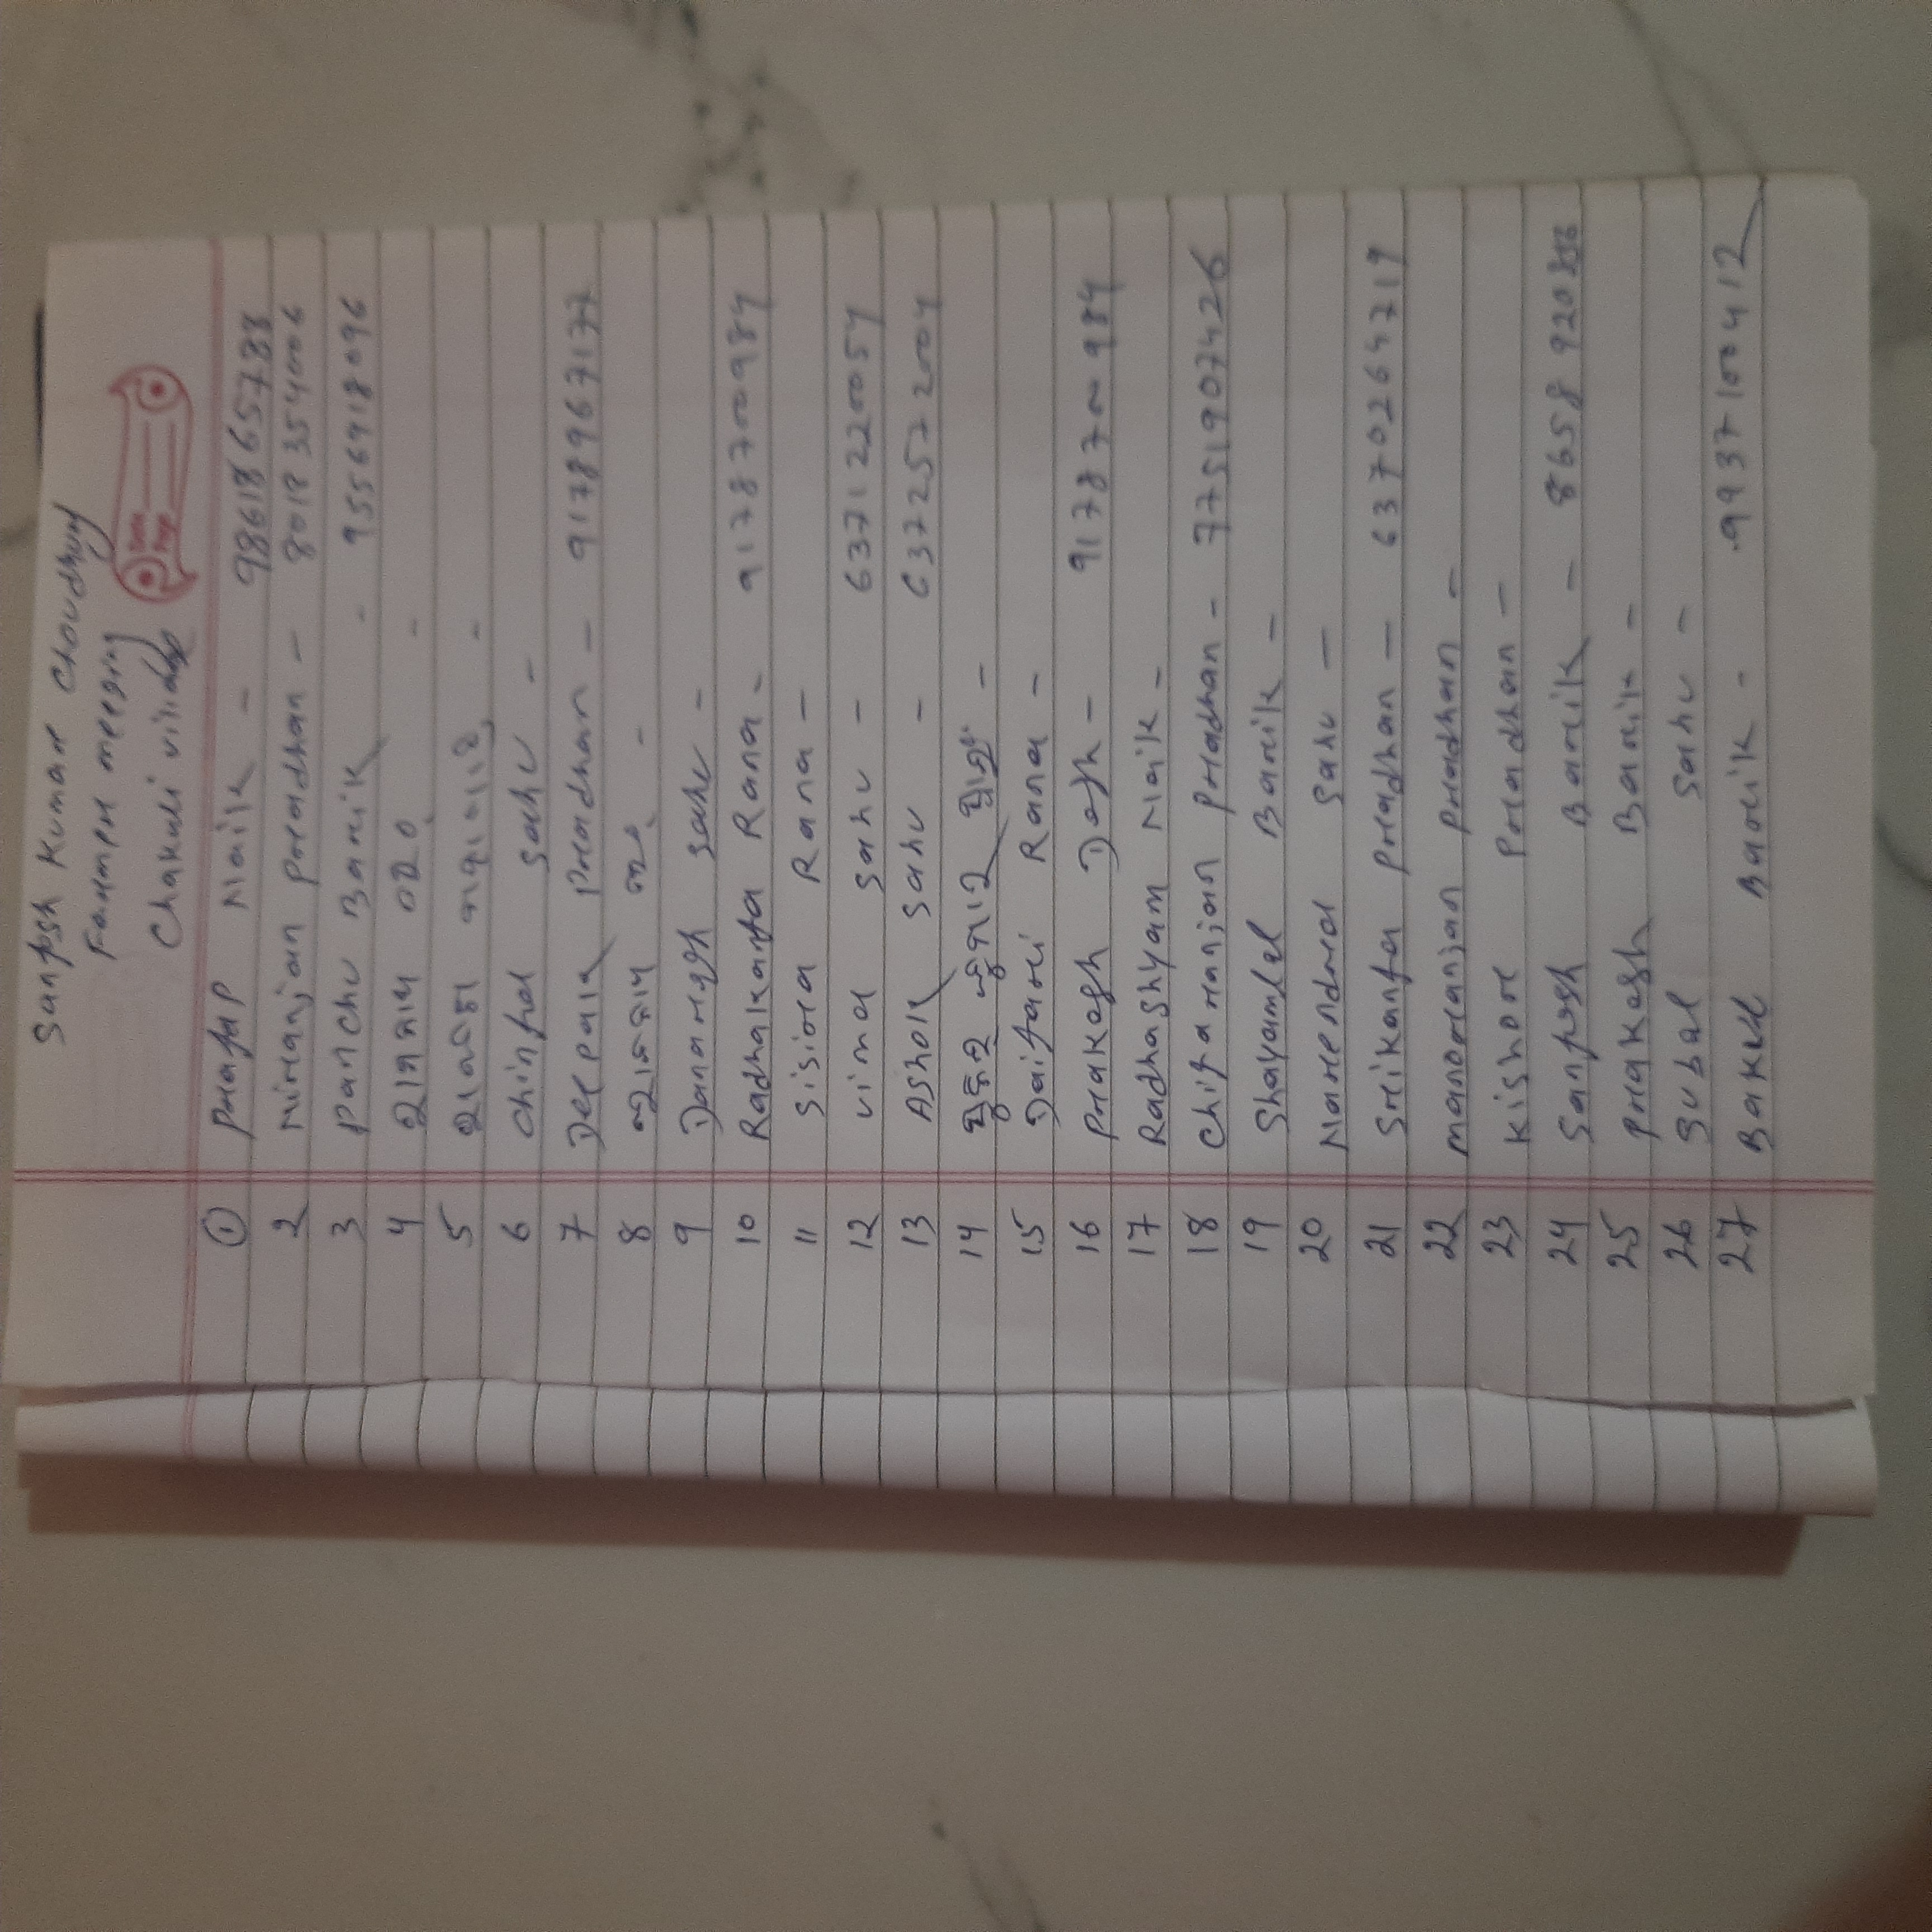 Santosh Kumar Choudhury
Farmer meeting
Chakuli village
Date
Page
① Pratap Naik - 9861865788
2 Niranjan Pradhan - 8018354006
3 Panchu Barik - 9556918096
4 -
5 -
6 Chintal Sahu -
7 Deepak Pradhan - 9178967177
8 -
9 Danaregh Sahu -
10 Radhakanta Rana - 9178700984
11 Sisira Rana -
12 Vimal Sahu - 6371220057
13 Ashok Sahu - 6372572004
14 -
15 Daitari Rana -
16 Prakash Dash - 9178700984
17 Radhashyam Naik -
18 Chitaranjan Pradhan - 7751907426
19 Shayamlal Barik -
20 Narendra Sahu -
21 Srikanta Pradhan - 6370264719
22 Manoranjan Pradhan -
23 Kishor Pradhan -
24 Santosh Barik - 8658920
25 Prakash Barik -
26 Subal Sahu -
27 Bakul Barik - 9937100412